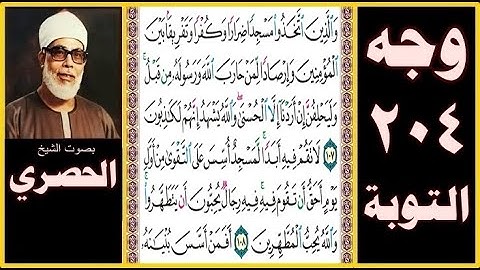 وجه
٢٠٤
التوبة
بصوت الشيخ
الحصري
وَالَّذِينَ اتَّخَذُوا مَسْجِدًا ضِرَارًا وَكُفْرًا وَتَفْرِيقًا بَيْنَ
الْمُؤْمِنِينَ وَإِرْصَادًا لِمَنْ حَارَبَ اللَّهَ وَرَسُولَهُ مِنْ قَبْلُ
وَلَيَحْلِفُنَّ إِنْ أَرَدْنَا إِلَّا الْحُسْنَىٰ وَاللَّهُ يَشْهَدُ إِنَّهُمْ لَكَاذِبُونَ
١٠٧ لَا تَقُمْ فِيهِ أَبَدًا لَمَسْجِدٌ أُسِّسَ عَلَى التَّقْوَىٰ مِنْ أَوَّلِ
يَوْمٍ أَحَقُّ أَنْ تَقُومَ فِيهِ فِيهِ رِجَالٌ يُحِبُّونَ أَنْ يَتَطَهَّرُوا
وَاللَّهُ يُحِبُّ الْمُطَّهِّرِينَ ١٠٨ أَفَمَنْ أَسَّسَ بُنْيَانَهُ